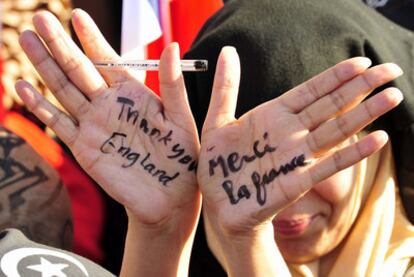 Thank you
England
Merci
la france